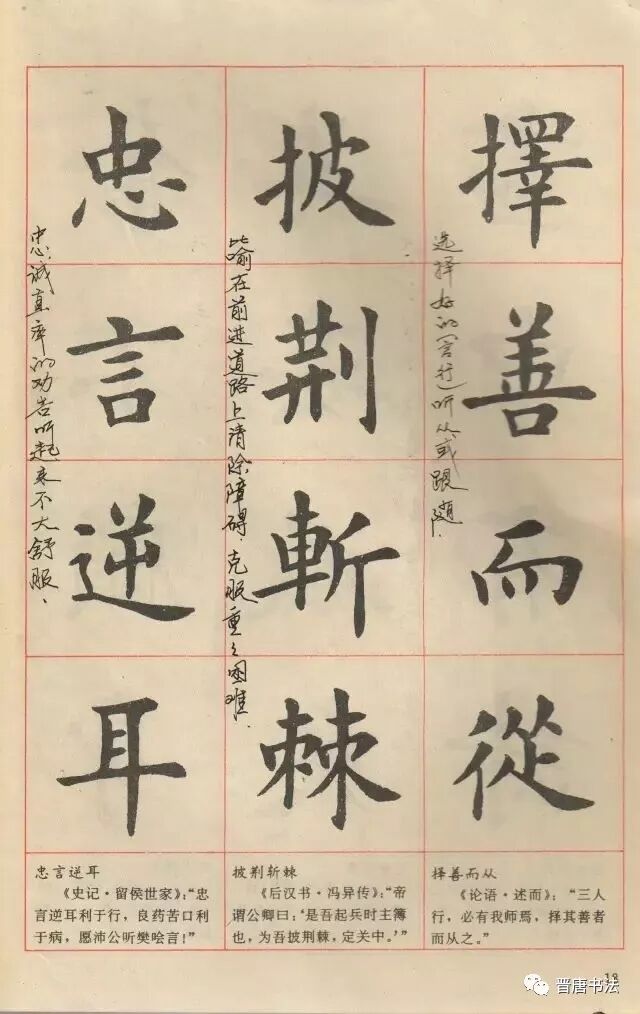 擇善而從
选择好的(言行)听从或跟随.
披荆斬棘
比喻在前进道路上清除障碍.克服重重困难.
忠言逆耳
忠诚直率的劝告听起来不大舒服.
择善而从
《论语·述而》：“三人
行，必有我师焉，择其善者
而从之。”
披荆斩棘
《后汉书·冯异传》：“帝
谓公卿曰：‘是吾起兵时主簿
也，为吾披荆棘，定关中。’”
忠言逆耳
《史记·留侯世家》：“忠
言逆耳利于行，良药苦口利
于病，愿沛公听樊哙言！”
18
晋唐书法